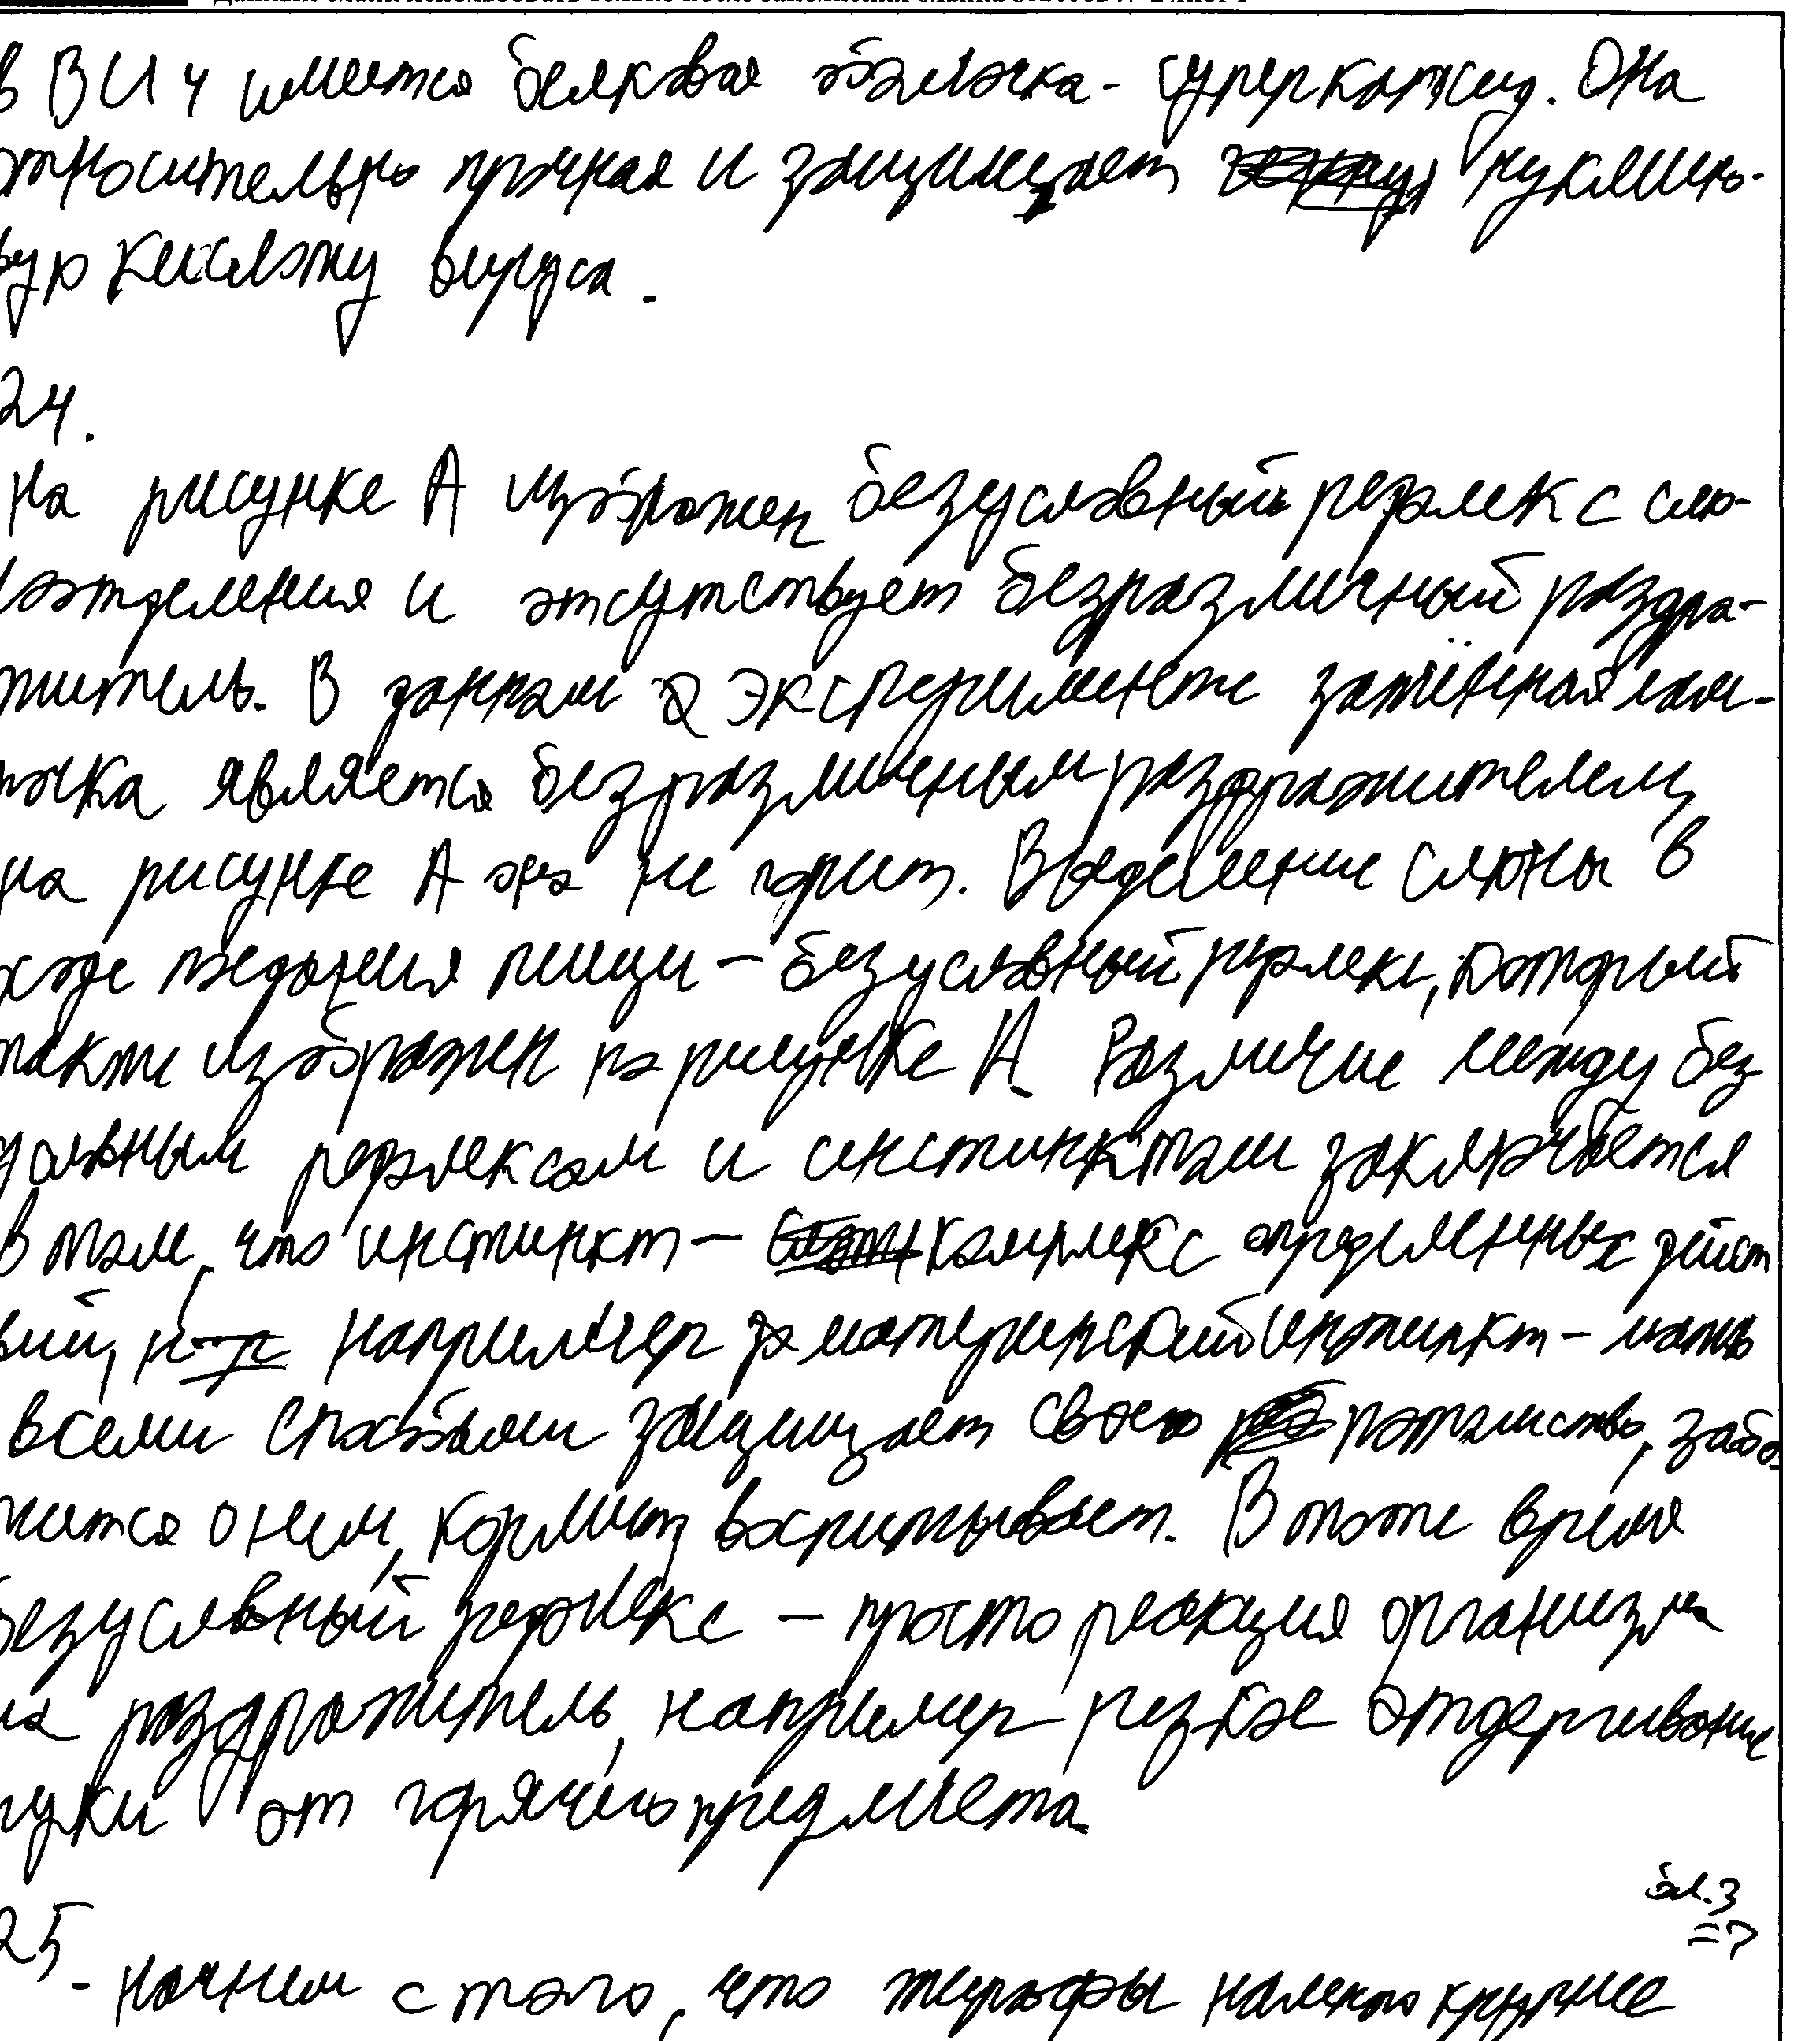 в ВИЧ имеется белковая оболочка - суперкапсид. Она
относительно прочная и защищает нуклеино-
вую кислоту вируса.
24.
На рисунке А изображен безусловный рефлекс слю-
ноотделения и отсутствует безразличный раздра-
житель. В данном эксперименте зажённая лам-
почка является безразличным раздражителем,
на рисунке А она не горит. Выделение слюны в
ходе поедания пищи - безусловный рефлекс, который
также изображен на рисунке А. Различие между без
условным рефлексом и инстинктом заключается
в том, что инстинкт - комплекс определенных дейст
вий, например материнский инстинкт - мать
всеми способами защищает своего потомство, забо
тится о нем, кормит, воспитывает. В тоже время
безусловный рефлекс - просто реакция организма
на раздражитель, например резкое отдергивание
руки от горячего предмета.
бл.3
=>
25. Начнем с того, что жирафы намного крупнее